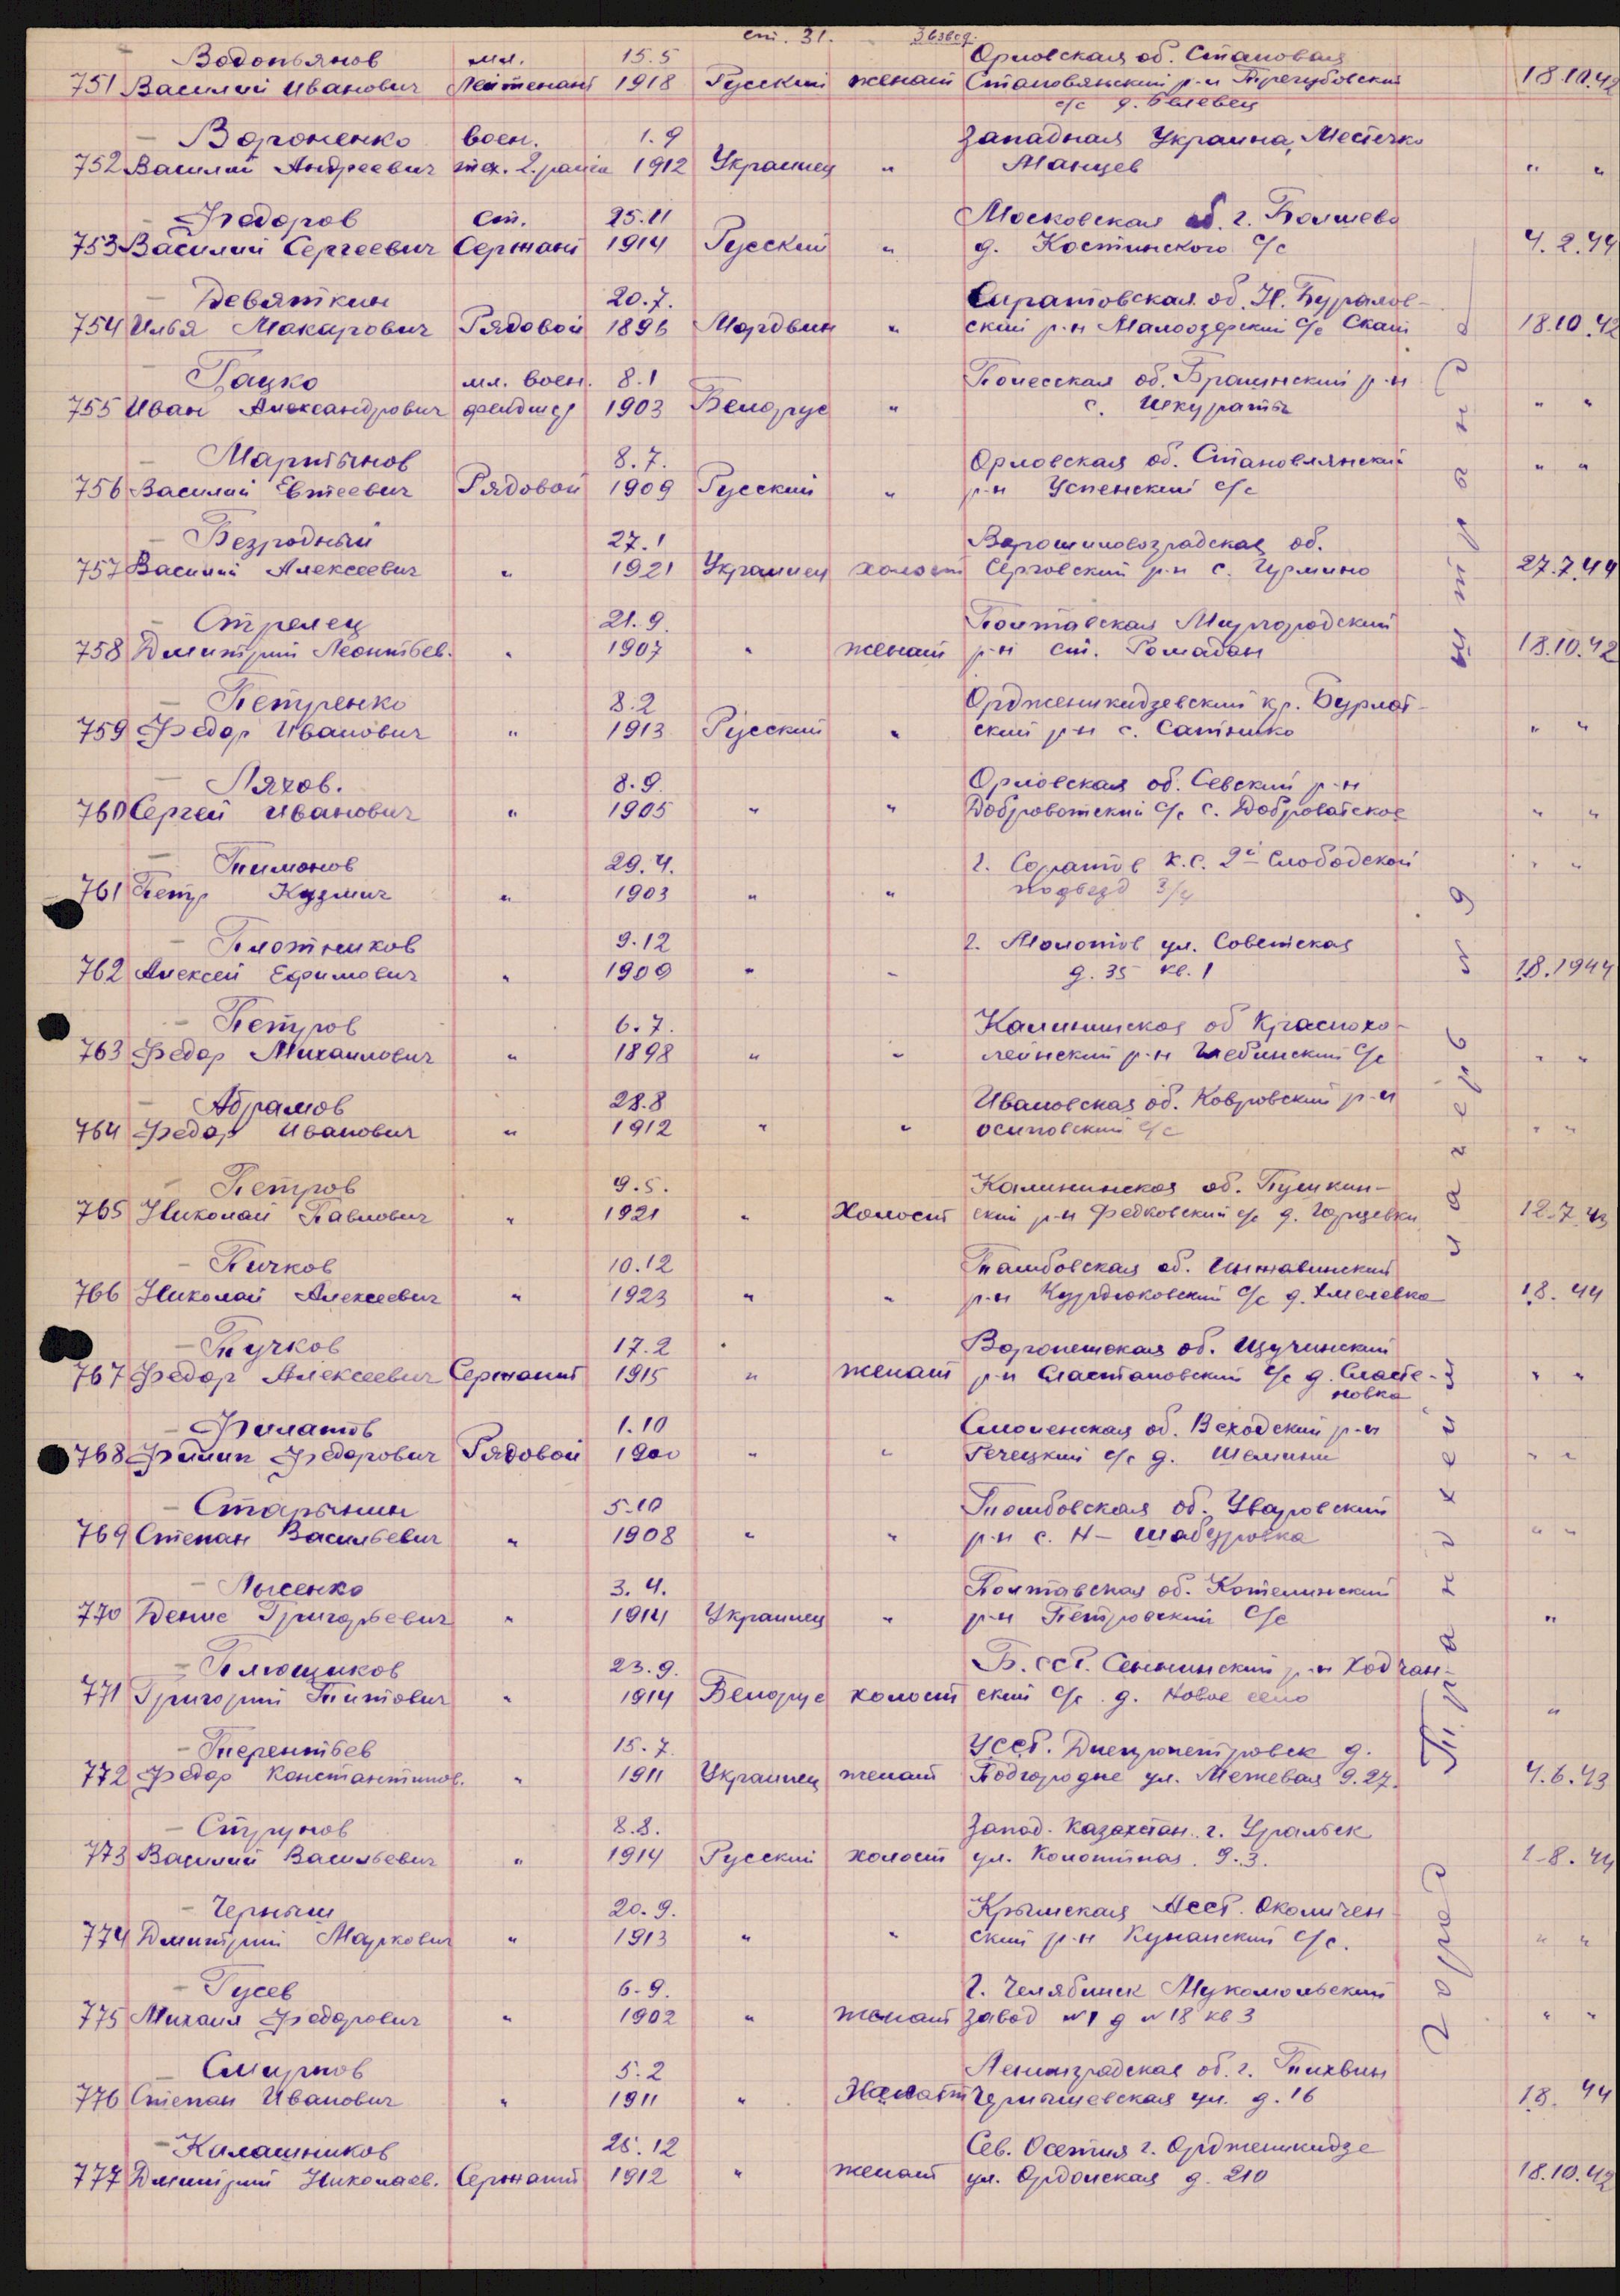 ст. 31. 3 взвод.
Водопьянов мл. 15.5 Орловская об. Становая
751 Василий Иванович Лейтенант 1918 Русский женат Становлянский р-н 18.10.42
с/с д.
Вороненко воен. 1.9 Западная Украина, Местечко
752 Василий Андреевич тех. 2. ранга 1912 Украинец " Манцев " "
Федоров ст. 25.11 Московская об. г. Болшево
753 Василий Сергеевич Сержант 1914 Русский " д. Костинского с/с 4.2.44
Девяткин 20.7. Саратовская об. Н.
754 Илья Макарович Рядовой 1896 Мордвин " ский р-н Малоозерский с/с 18.10.42
Гацко мл. воен. 8.1 Полесская об. Брагинский р-н
755 Иван Александрович фельдшер 1903 Белорус " с. Шкураты " "
Мартынов 8.7. Орловская об. Становлянский " "
756 Василий Евтеевич Рядовой 1909 Русский " р-н Успенский с/с
Безродный 27.1 Ворошиловоградская об.
757 Василий Алексеевич " 1921 Украинец холост р-н с. 27.7.44
Стрелец 21.9. Полтавская Миргородский
758 Дмитрий Леонтьев. " 1907 " женат р-н ст. Ромадан 18.10.42
Петренко 8.2 Орджоникидзевский кр. Бурлат-
759 Федор Иванович " 1913 Русский " ский р-н с. " "
Ляхов. 8.9. Орловская об. Севский р-н
760 Сергей Иванович " 1905 " " Доброводский с/с с. Доброводское " "
Тимонов 29.4. г. Саратов К.С. 2й Слободской " "
761 Петр Кузмич " 1903 " " подъезд 3/4
Плотников 9.12 г. Молотов ул. Советская
762 Алексей Ефимович " 1909 " " д. 35 кв. 1 1.8.1944
Петров 6.7. Калининская об Краснохо-
763 Федор Михаилович " 1898 " " лмский р-н с/с " "
Абрамов 28.8 Ивановская об. Ковровский р-н
764 Федор Иванович " 1912 " " осиповский с/с " "
Петров 9.5. Калининская об. Пушкин-
765 Николай Павлович " 1921 " Холост ский р-н Федковский с/с д. 12.7.43
Пичков 10.12 Тамбовская об. Инжавинский
766 Николай Алексеевич " 1923 " " р-н Курдюковский с/с д. Хмелевка 1.8. 44
Тучков 17.2 Воронежская об. Щучинский
767 Федор Алексеевич Сержант 1915 " женат р-н Сластановский с/с д. Сласте- " "
новка
Филатов 1.10 Смоленская об. Всходский р-н
768 Филип Федорович Рядовой 1900 " " с/с д. Шемини " "
Старынин 5.10 Тамбовская об. Уваровский
769 Степан Васильевич " 1908 " " р-н с. Н- Шабуровка " "
Лысенко 3.4. Полтавская об. Котелинский
770 Денис Григорьевич " 1914 Украинец " р-н Петровский с/с "
Плющиков 23.9. Б.ССР. Сеннинский р-н Ходчан-
771 Григорий Титович " 1914 Белорус холост ский с/с д. Новое село "
Терентьев 15.7. УССР. Днепропетровск д.
772 Федор Константинов. " 1911 Украинец женат Подгородне ул. Межевая д.27. 4.6.43
Струнов 8.8. Запад. Казахстан. г. Уральск
773 Василий Васильевич " 1914 Русский холост ул. д.3. 1-8.44
Черныш 20.9. Крымская АССР.
774 Дмитрий Маркович " 1913 " " ский р-н с/с. " "
Гусев 6.9. г. Челябинск Мукомольский
775 Михаил Федорович " 1902 " женат завод №1 д №18 кв 3 " "
Смирнов 5.2 Ленинградская об. г. Тихвин
776 Степан Иванович " 1911 " Чернышевская ул. д. 16 1.8. 44
Калашников 25.12 Сев. Осетия г. Орджоникидзе
777 Дмитрий Николаев. Сержант 1912 " женат ул. Ордонская д. 210 18.10.42
город Транхейм лагерь № 9 штранг